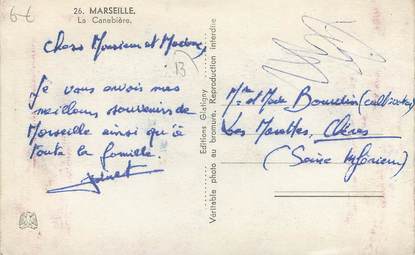 6€
26. MARSEILLE.
La Canebière.
Chers Monsieur et Madame,
13
Je vous envois mes
meilleurs souvenirs de
Marseille ainsi qu'à
toute la famille.
Editions Glatigny
Véritable photo au bromure. Reproduction interdite
Mr et Mme Bourdin
Les Marettes, Clères
(Seine Inférieure)